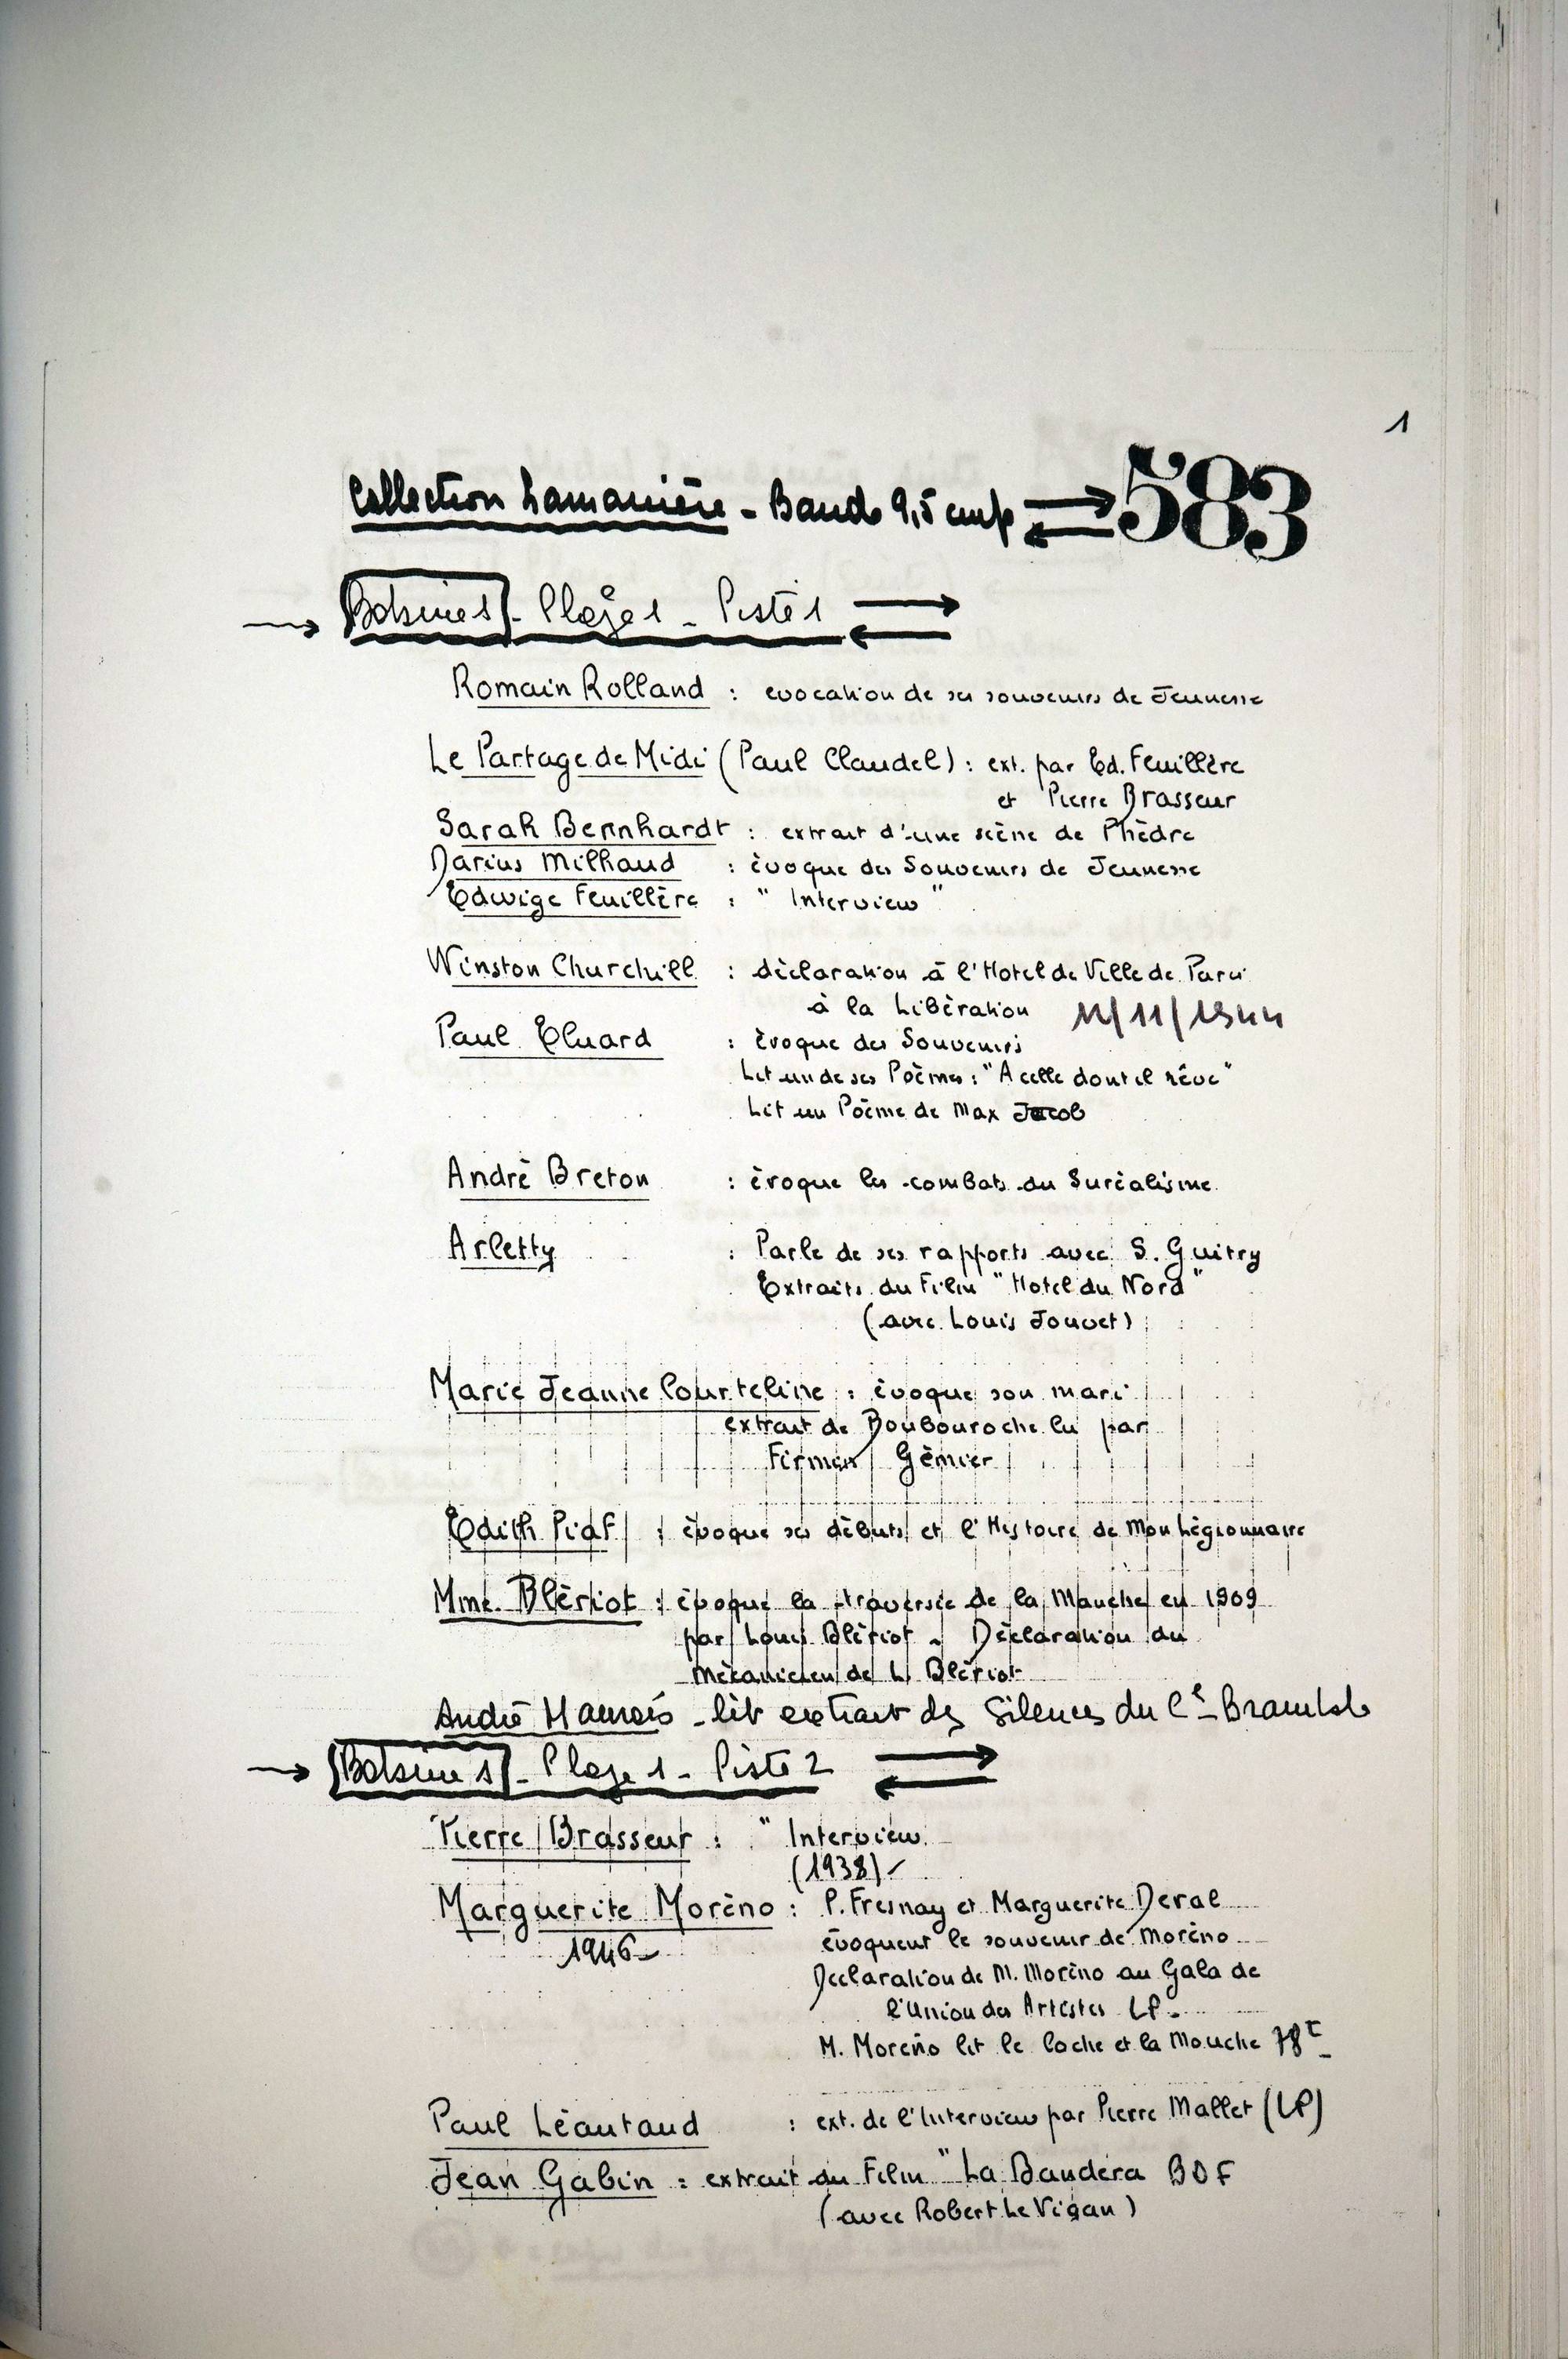 1
Collection Lamanière - Bande 9,5 cm/s 583
Bobine 1 - Plage 1 - Piste 1
Romain Rolland : évocation de ses souvenirs de Jeunesse
Le Partage de Midi (Paul Claudel) : ext. par Ed. Feuillère
et Pierre Brasseur
Sarah Bernhardt : extrait d'une scène de Phèdre
Darius Milhaud : évoque des Souvenirs de Jeunesse
Edwige Feuillère : " Interview "
Winston Churchill : déclaration à l'Hotel de Ville de Paris
à la Libération 12/11/1944
Paul Eluard : évoque des Souvenirs
Lit un de ses Poèmes : "A celle dont il rêve"
Lit un Poème de Max Jacob
André Breton : évoque les combats du Suréalisme
Arletty : Parle de ses rapports avec S. Guitry
Extraits du Film "Hotel du Nord"
(avec Louis Jouvet)
Marie Jeanne Courteline : évoque son mari
extrait de Boubouroche lu par
Firmin Gémier
Edith Piaf : évoque ses débuts et l'Histoire de Mon Légionnaire
Mme. Blériot : évoque la traversée de la Manche en 1909
par Louis Blériot - Déclaration du
Mécanicien de L. Blériot
André Maurois - lit extrait des Silences du Cl Bramble
Bobine 1 - Plage 1 - Piste 2
Pierre Brasseur : " Interview
(1938)
Marguerite Moréno : P. Fresnay et Marguerite Deval
1946 évoquent le souvenir de Moréno
Déclaration de M. Moréno au Gala de
l'Union des Artistes LP.
M. Moreno lit le Coche et la Mouche 78t
Paul Léautaud : ext. de l'Interview par Pierre Mallet (LP)
Jean Gabin : extrait du Film "La Bandera BOF
(avec Robert Le Vigan)